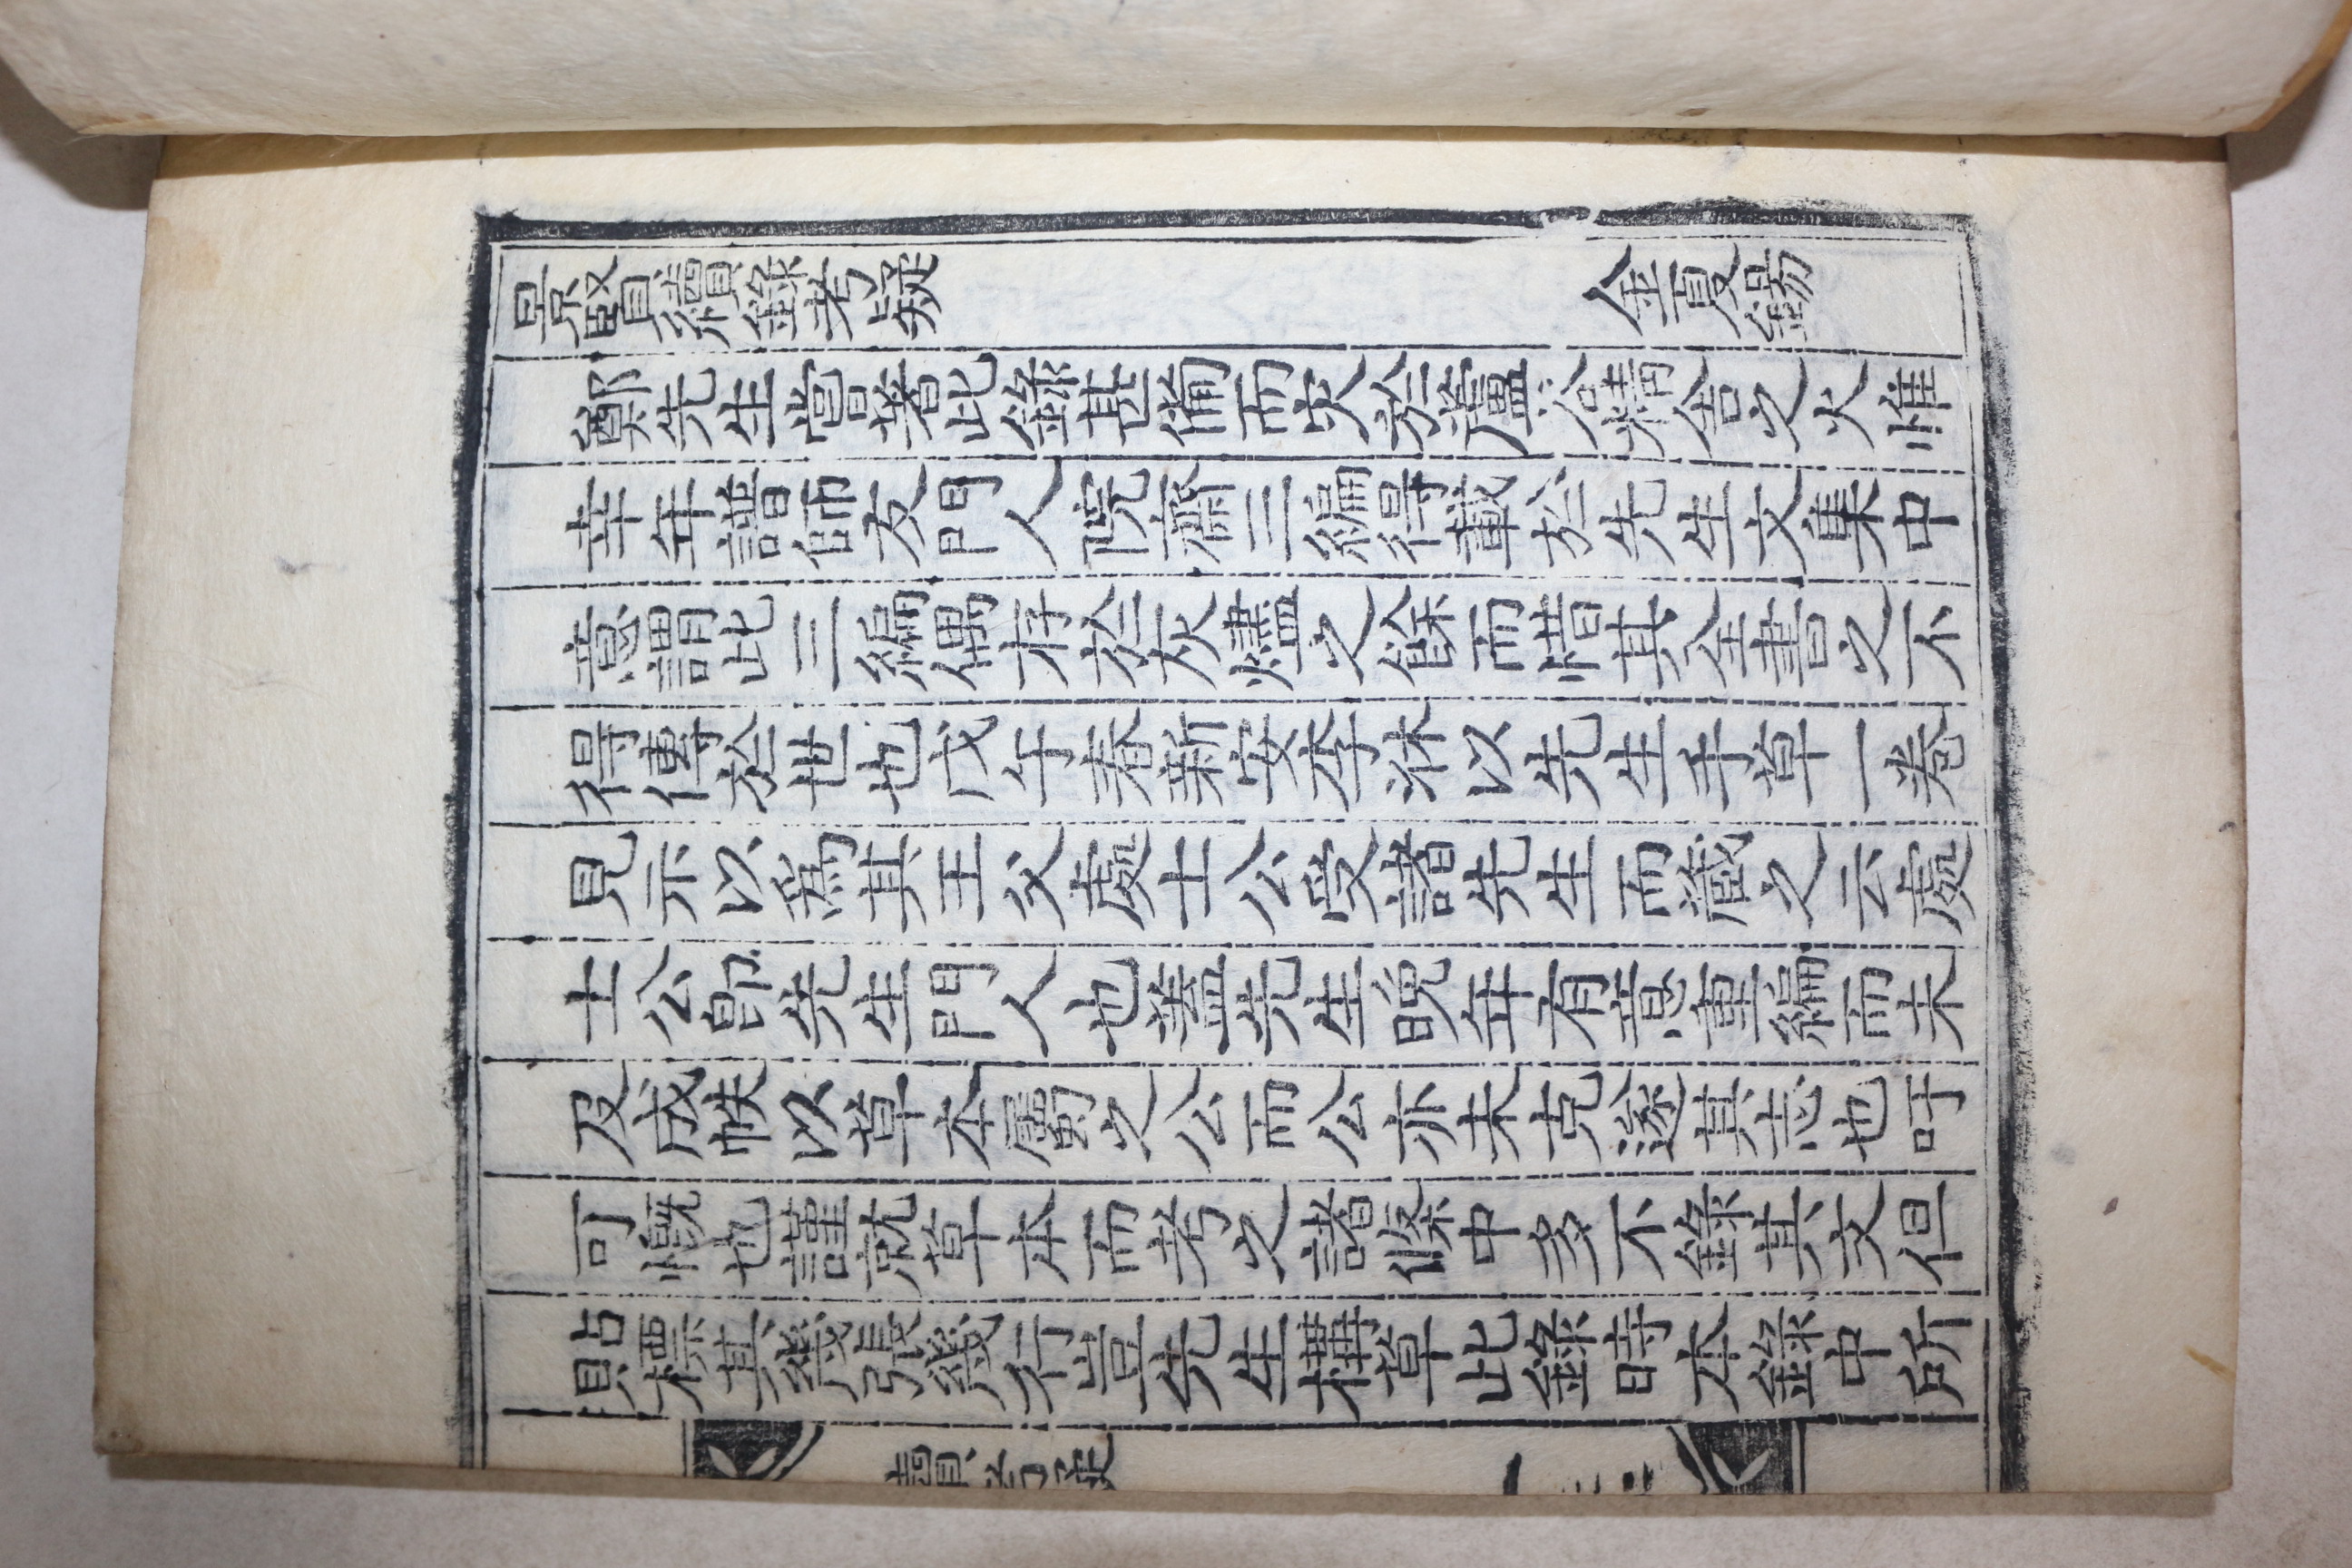 景賢續錄考疑 金夏錫
鄭先生嘗著此錄甚備而失於蘆谷精舍之火惟
幸年譜師友門人院齋三編得載於先生文集中
意謂此三編偶存於灰燼之餘而惜其全書之不
得傳於世也戊午春新安李牀以先生手草一卷
見示以爲其王父處士公受諸先生而藏之云處
士公卽先生門人也蓋先生晚年有意重編而未
及成帙以草本屬之公而公亦未克遂其志也吁
可慨也謹就草本而考之諸條中多不錄其文但
點標其幾張幾行豈先生搆草此錄時本錄中所
續考疑